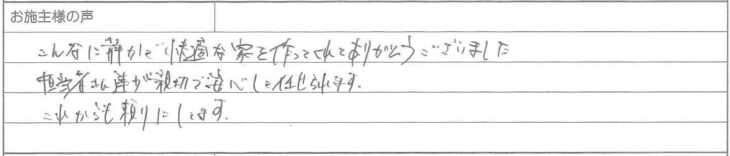 お施主様の声
こんなに静かで快適な家を作ってくれてありがとうございました
担当者さん達が親切で安心して任せられます.
これからも頼りにしてます.